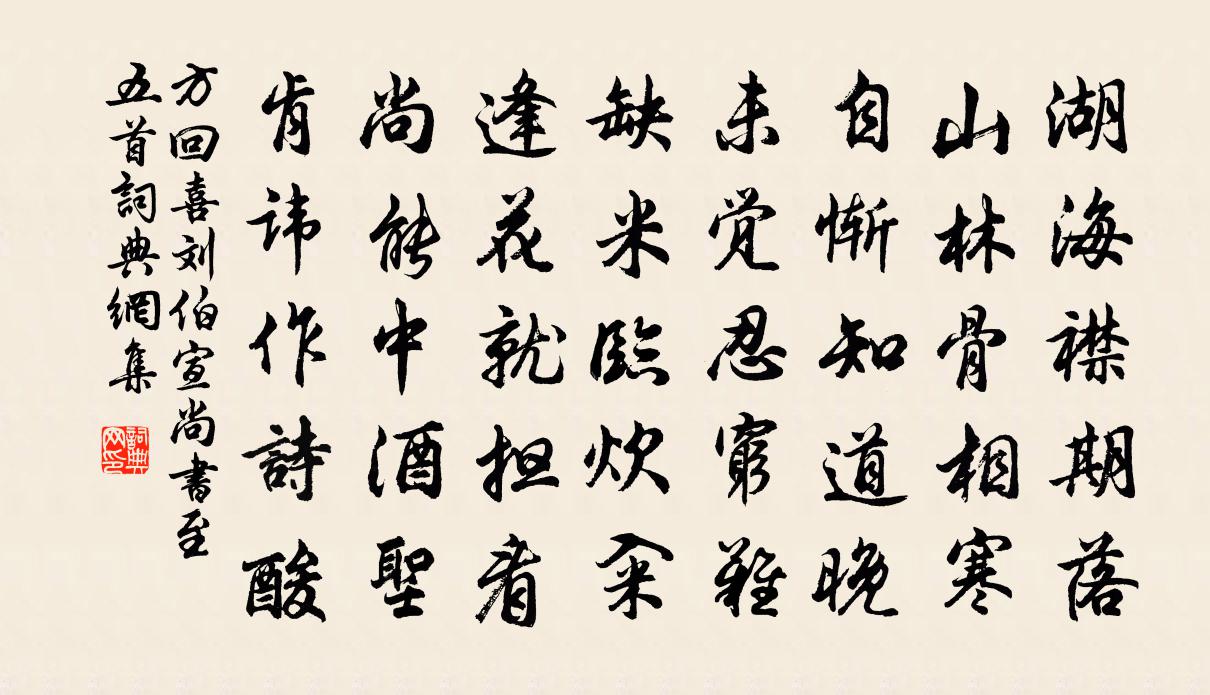 湖海襟期落
山林骨相寒
自惭知道晚
未觉忍窮難
缺米臨炊籴
逢花就担看
尚能中酒聖
肯讳作詩酸
方回喜刘伯宣尚書至
五首詞典網集
詞典网印